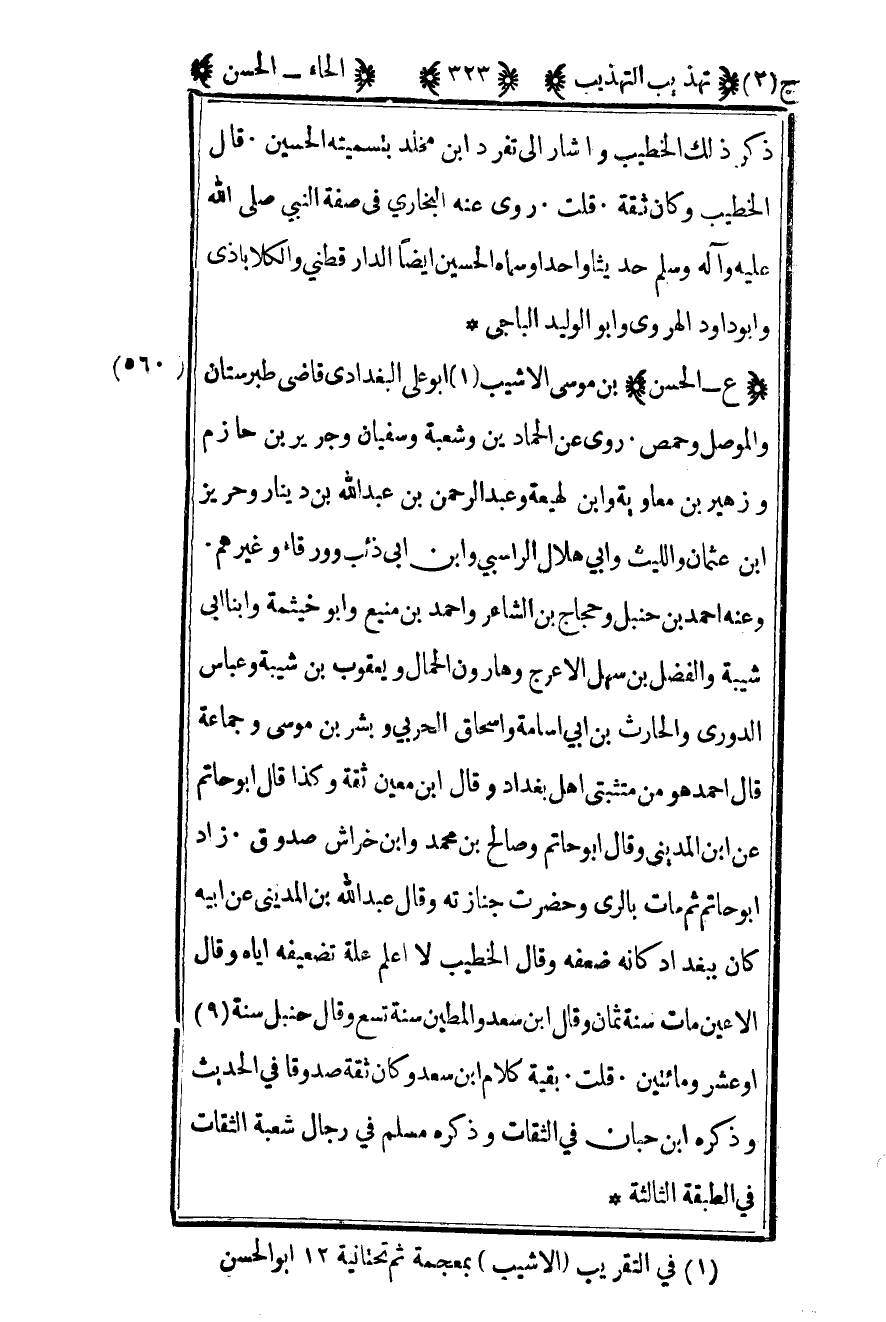 ج (٢) ﴿ تهذيب التهذيب ﴾ ﴿ ٣٢٣ ﴾ ﴿ الحاء ــ الحسن ﴾
ذكر ذلك الخطيب و اشار الى تفرد ابن مخلد بتسميته الحسين ٠ قال
الخطيب وكان ثقة ٠ قلت ٠ روى عنه البخاري فى صفة النبي صلى الله
عليه وآله وسلم حديثا واحدا وسماه الحسين ايضاً الدار قطني والكلاباذى
وابوداود الهروى وابو الوليد الباجى *
﴿ ع ــ الحسن ﴾ بن موسى الاشيب (١) ابو على البغدادى قاضى طبرستان (٥٦٠)
والموصل وحمص ٠ روى عن الحمادين وشعبة وسفيان وجرير بن حازم
و زهير بن معاوية وابن لهيعة وعبد الرحمن بن عبد الله بن دينار وحريز
ابن عثمان والليث وابي هلال الراسبي وابن ابى ذئب وورقاء وغيرهم ٠
وعنه احمد بن حنبل وحجاج بن الشاعر واحمد بن منيع وابو خيثمة وابنا ابى
شيبة والفضل بن سهل الاعرج وهارون الحمال ويعقوب بن شيبة وعباس
الدورى والحارث بن ابي اسامة واسحاق الحربي وبشر بن موسى وجماعة
قال احمد هو من متثبتى اهل بغداد وقال ابن معين ثقة وكذا قال ابوحاتم
عن ابن المدينى وقال ابوحاتم وصالح بن محمد وابن خراش صدوق ٠ زاد
ابوحاتم ثم مات بالرى وحضرت جنازته وقال عبد الله بن المدينى عن ابيه
كان ببغداد كانه ضعفه وقال الخطيب لا اعلم علة تضعيفه اياه وقال
الاعين مات سنة ثمان وقال ابن سعد والمطين سنة تسع وقال حنبل سنة (٩)
اوعشر ومائتين ٠ قلت ٠ بقية كلام ابن سعد وكان ثقة صدوقا في الحديث
وذكره ابن حبان في الثقات وذكره مسلم في رجال شعبة الثقات
في الطبقة الثالثة *
(١) في التقريب (الاشيب) بمعجمة ثم تحتانية ١٢ ابوالحسن